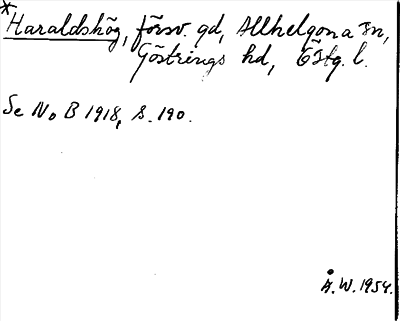 *Haraldshög, försv. gd, Allhelgona sn,
Göstrings hd, Östg. l.
Se No B 1918, s. 190.
Å.W. 1954.